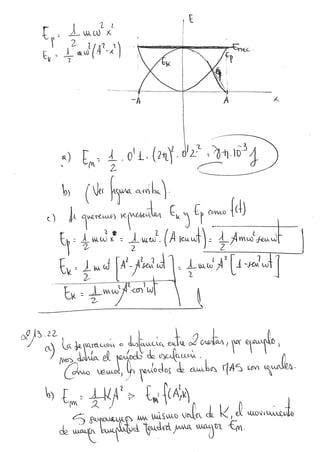 Ep = 1/2 mω²x²
Ek = 1/2 mω²(A²-x²)
E
Emec
Ep
Ek
-A
A
x
a) Em = 1/2 · 0'1 · (2π)² · 0'2² =
b) (Ver figura arriba).
c) Si queremos representar Ek y Ep como f(t)
Ep = 1/2 mω²x² = 1/2 mω² · (A senωt)² = 1/2 Amω² senωt
Ek = 1/2 mω² [A² - A²sen²ωt] = 1/2 mω²A² [1 - sen²ωt]
Ek = 1/2 mω²A²cos²ωt
13.22
a) La separación o distancia entre 2 crestas, por ejemplo,
nos daría el período de oscilación.
Como vemos, los períodos de ambos MAS son iguales.
b) Em = 1/2 KA² => Em f(A²,K)
Si suponemos un mismo valor de K, el movimiento
de mayor amplitud tendrá una mayor Em.